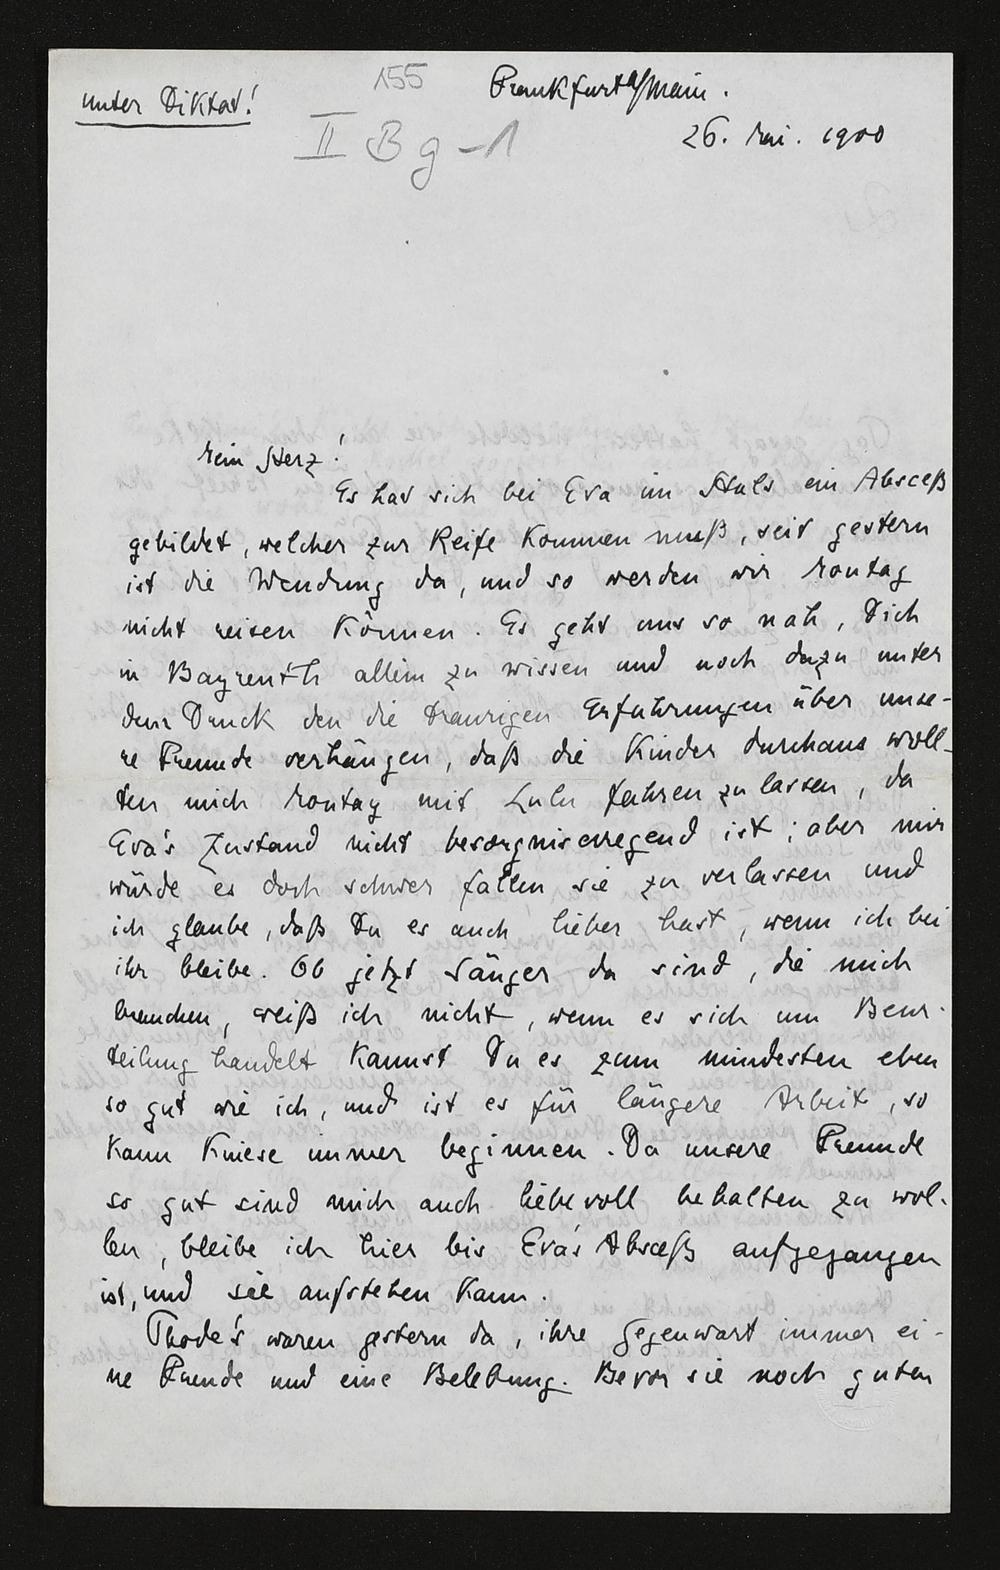 155
unter Diktat!
Frankfurt a/Main.
II Bg-1
26. Mai. 1900
Mein Herz!
Es hat sich bei Eva im Hals ein Absceß
gebildet, welcher zur Reife kommen muß, seit gestern
ist die Wendung da, und so werden wir Montag
nicht reisen können. Es geht uns so nah, Dich
in Bayreuth allein zu wissen und noch dazu unter
dem Druck den die traurigen Erfahrungen über unse-
re Freunde verhängen, daß die Kinder durchaus woll-
ten mich Montag mit Lulu fahren zu lassen, da
Eva's Zustand nicht besorgniserregend ist; aber mir
würde es doch schwer fallen sie zu verlassen und
ich glaube, daß Du es auch lieber hast, wenn ich bei
ihr bleibe. Ob jetzt Sänger da sind, die mich
brauchen, weiß ich nicht, wenn es sich um Beur-
teilung handelt kannst Du es zum mindesten eben
so gut wie ich, und ist es für längere Arbeit, so
kann Kniese immer beginnen. Da unsere Freunde
so gut sind mich auch liebevoll behalten zu wol-
len, bleibe ich hier bis Eva's Absceß aufgegangen
ist, und sie aufstehen kann.
Thode's waren gestern da, ihre Gegenwart immer ei-
ne Freude und eine Belebung. Bevor sie noch guten